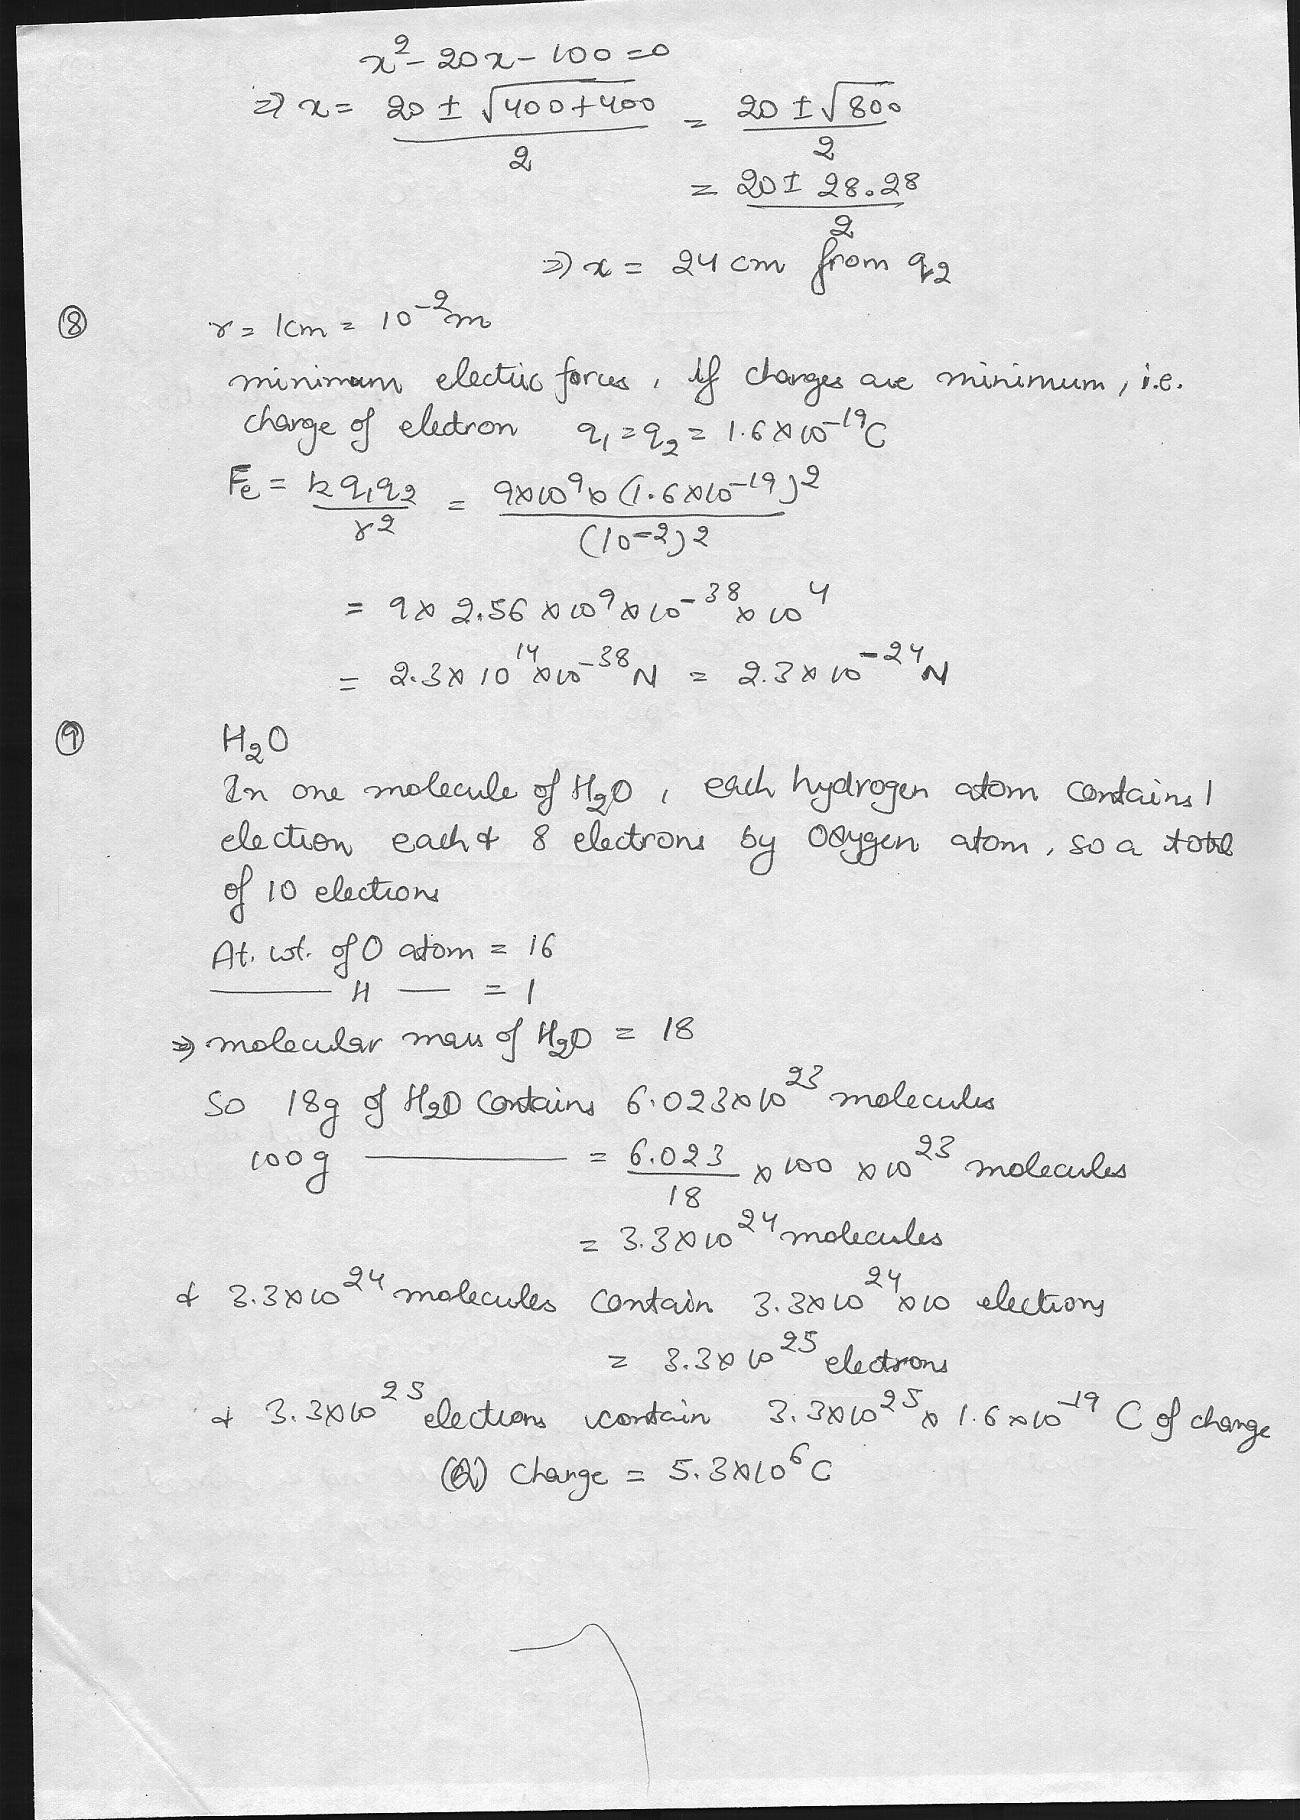 x² - 20x - 100 = 0
⇒ x = (20 ± √(400+400))/2 = (20 ± √800)/2
= (20 ± 28.28)/2
⇒ x = 24 cm from q₂
⑧ r = 1cm = 10⁻² m
minimum electric forces, if charges are minimum, i.e.
charge of electron q₁ = q₂ = 1.6 × 10⁻¹⁹ C
Fe = k q₁q₂/r² = 9×10⁹ × (1.6×10⁻¹⁹)²/(10⁻²)²
= 9 × 2.56 × 10⁹ × 10⁻³⁸ × 10⁴
= 2.3 × 10¹⁴ × 10⁻³⁸ N = 2.3 × 10⁻²⁴ N
⑨ H₂O
In one molecule of H₂O, each hydrogen atom contains 1
electron each & 8 electrons by Oxygen atom, so a total
of 10 electrons
At. wt. of O atom = 16
——— H — = 1
⇒ molecular mass of H₂O = 18
So 18g of H₂O contains 6.023×10²³ molecules
100g ——— = 6.023/18 × 100 × 10²³ molecules
= 3.3×10²⁴ molecules
& 3.3×10²⁴ molecules contain 3.3×10²⁴×10 electrons
= 3.3×10²⁵ electrons
& 3.3×10²⁵ electrons contain 3.3×10²⁵ × 1.6×10⁻¹⁹ C of charge
(Q) Charge = 5.3×10⁶ C